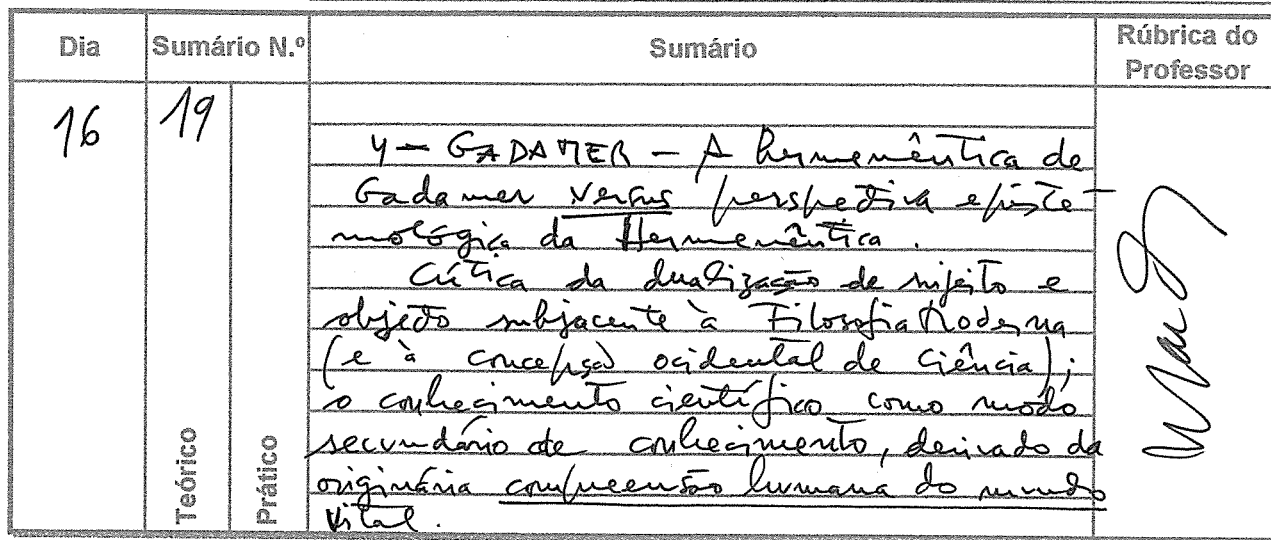 Dia Sumário N.º Sumário Rúbrica do Professor
16 19
4 – GADAMER – A hermenêutica de
Gadamer versus perspectiva episte-
mológica da Hermenêutica.
Crítica da dualização de sujeito e
objecto subjacente à Filosofia Moderna
(e à concepção ocidental de Ciência);
o conhecimento científico como modo
secundário de conhecimento, derivado da
originária compreensão humana do mundo
vital.
Teórico
Prático